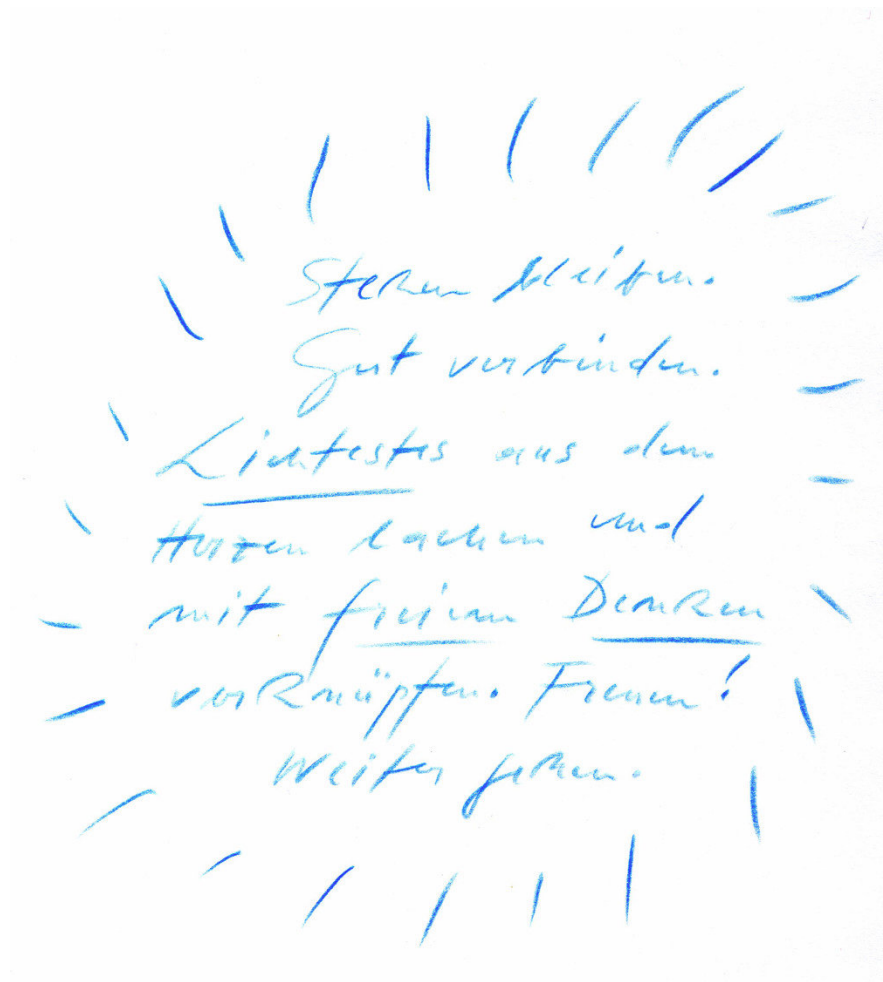 Stehen bleiben.
Gut verbinden.
Lichtestes aus dem
Herzen lachen und
mit freiem Denken
verknüpfen. Freuen!
Weiter gehen.